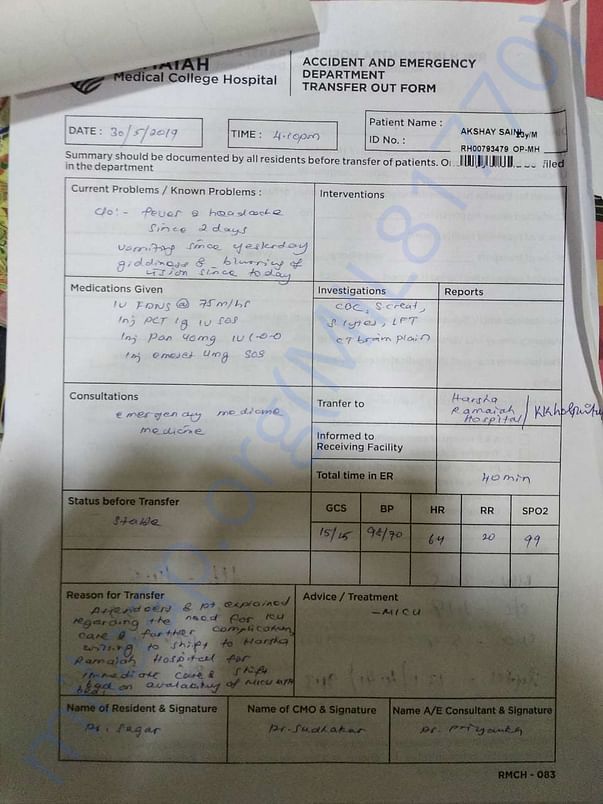 Medical College Hospital
ACCIDENT AND EMERGENCY
DEPARTMENT
TRANSFER OUT FORM
DATE : 30/5/2019
TIME : 4.10pm
Patient Name : AKSHAY SAINI 20y/M
ID No. : RH00793479 OP-MH
Summary should be documented by all residents before transfer of patients. filed
in the department
Current Problems / Known Problems :
c/o:- fever & headache
since 2 days
vomiting since yesterday
giddiness & blurring of
vision since today
Interventions
Medications Given
IV FDNS @ 75ml/hr
Inj PCT 1g IV SOS
Inj Pan 40mg IV 1-0-0
Inj emeset 4mg SOS
Investigations
CBC, S.creat,
S lytes, LFT
CT brain plain
Reports
Consultations
emergency medicine
medicine
Tranfer to
Harsha
Ramaiah
Hospital / KK hospital
Informed to
Receiving Facility
Total time in ER
40min
Status before Transfer
Stable
GCS BP HR RR SPO2
15/15 98/70 64 20 99
Reason for Transfer
Attenders & pt explained
regarding the need for ICU
care & further complication,
willing to shift to Harsha
Ramaiah Hospital for
immediate care & shift
back on availability of MICU
bed.
Advice / Treatment
- MICU
Name of Resident & Signature
Dr. Sagar
Name of CMO & Signature
Dr. Sudhakar
Name A/E Consultant & Signature
Dr. Priyankh
RMCH - 083